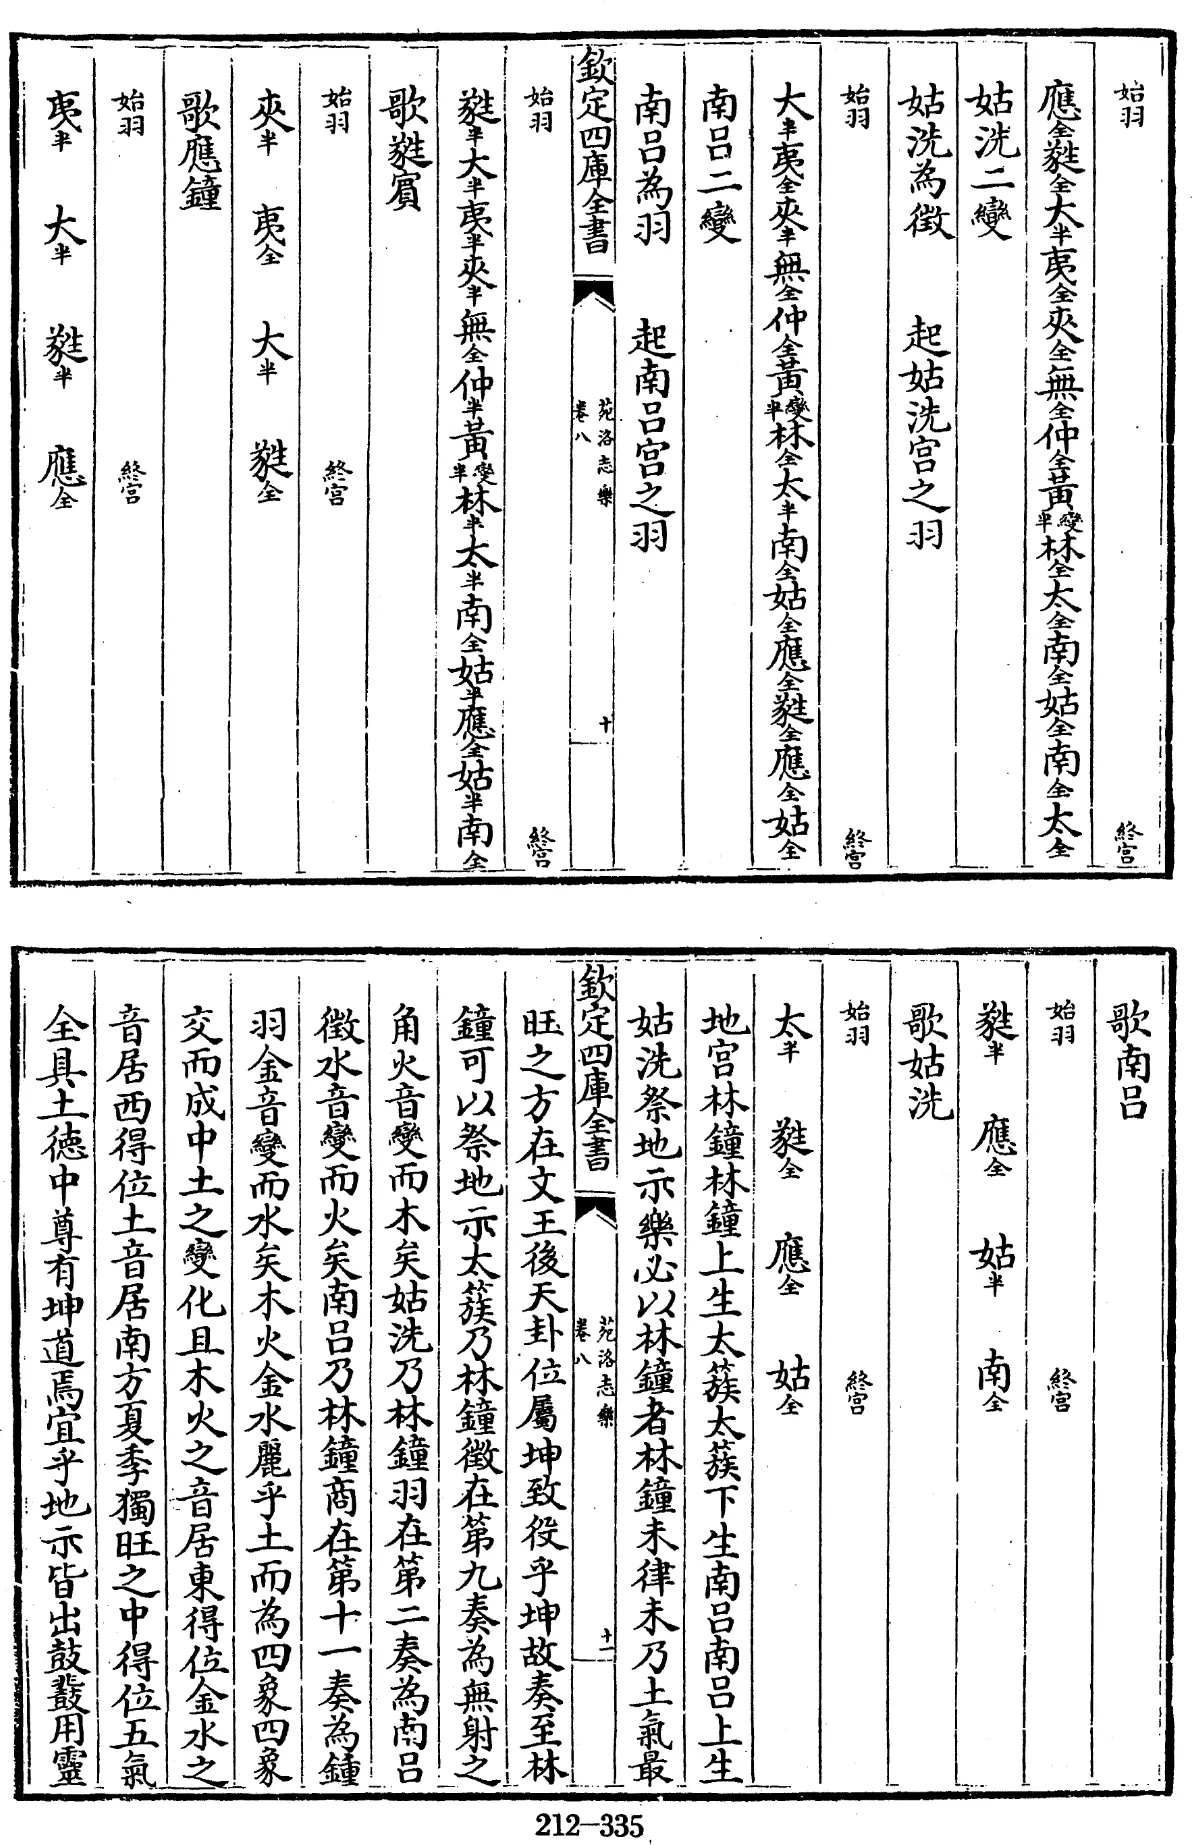 始羽 終宮
應全蕤全大半夷全夾全無全仲全黃變半林全太全南全姑全南全太全
姑洗二變
姑洗為徵 起姑洗宫之羽
始羽 終宮
大半夷全夾半無全仲全黃變半林全太半南全姑全應全蕤全應全姑全
南呂二變
南呂為羽 起南呂宫之羽
欽定四庫全書 苑洛志樂 卷八 十
始羽 終宮
蕤半大半夷半夾半無全仲半黃變半林半太半南全姑半應全姑半南全
歌蕤賓
始羽 終宮
夾半 夷全 大半 蕤全
歌應鐘
始羽 終宮
夷半 大半 蕤半 應全
歌南呂
始羽 終宮
蕤半 應全 姑半 南全
歌姑洗
始羽 終宮
太半 蕤全 應全 姑全
地宫林鐘林鐘上生太蔟太蔟下生南呂南呂上生
姑洗祭地示樂必以林鐘者林鐘未律未乃土氣最
欽定四庫全書 苑洛志樂 卷八 十一
旺之方在文王後天卦位屬坤致役乎坤故奏至林
鐘可以祭地示太蔟乃林鐘徵在第九奏為無射之
角火音變而木矣姑洗乃林鐘羽在第二奏為南呂
徵水音變而火矣南呂乃林鐘商在第十一奏為鍾
羽金音變而水矣木火金水麗乎土而為四象四象
交而成中土之變化且木火之音居東得位金水之
音居西得位土音居南方夏季獨旺之中得位五氣
全具土德中尊有坤道焉宜乎地示皆出鼓鼗用靈
212-335